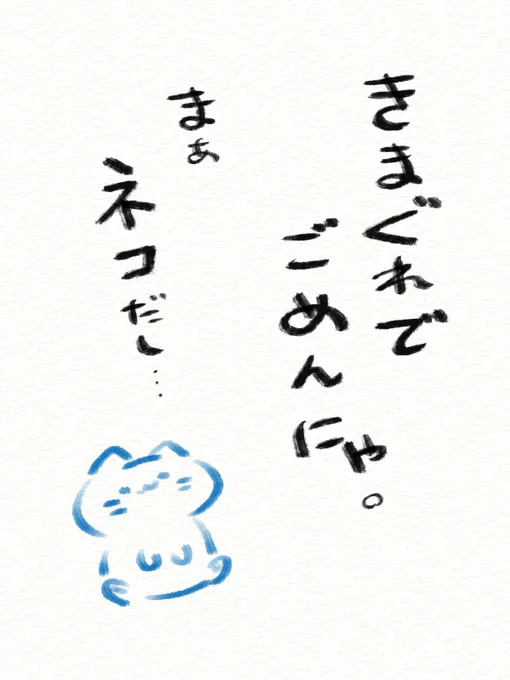 きまぐれで
ごめんにゃ。
まぁ
ネコだし…